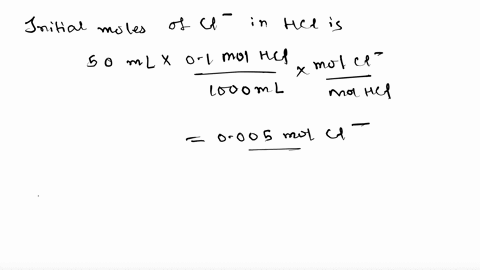 Initial moles of Cl⁻ in HCl is
50 mL × 0.1 mol HCl / 1000 mL × mol Cl⁻ / mol HCl
= 0.005 mol Cl⁻